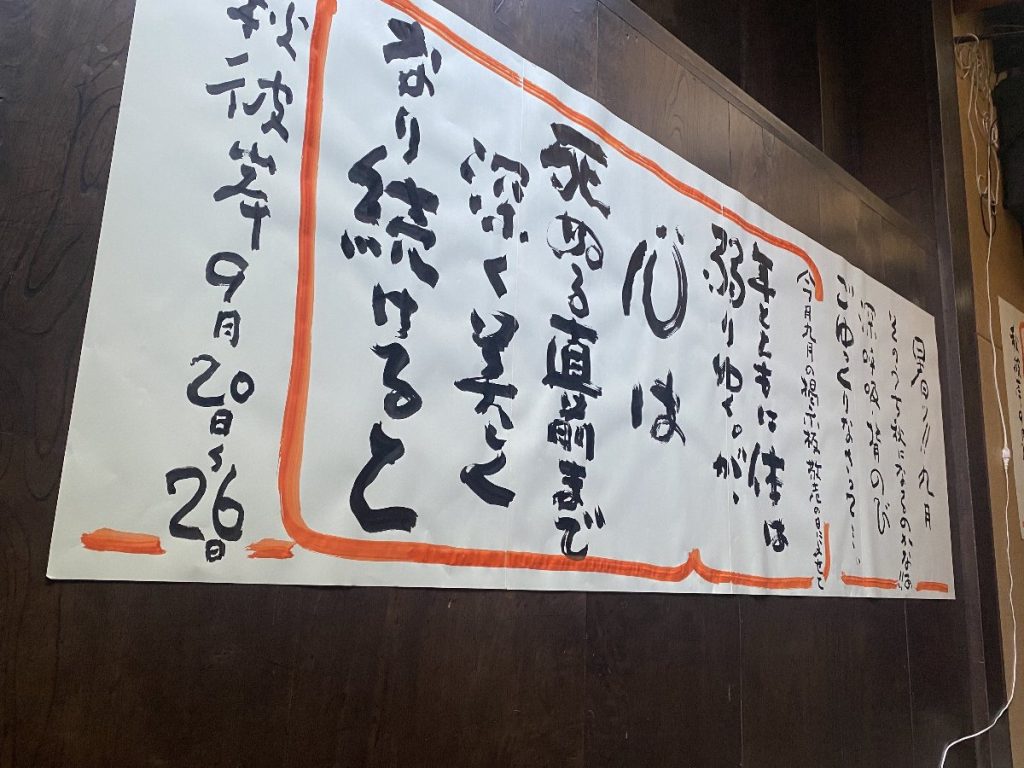 早口ノ!! 九月
そのうち秋になるのかなぁ!!
深呼吸 背のび
ごゆっくりなさって……
今月九月の掲示板 教恵のおしえと
年とともに体は
弱りゆく。が、
心は
死ぬる直前まで
深く美しく
なり続けると
秋彼岸 9月20日〜26日